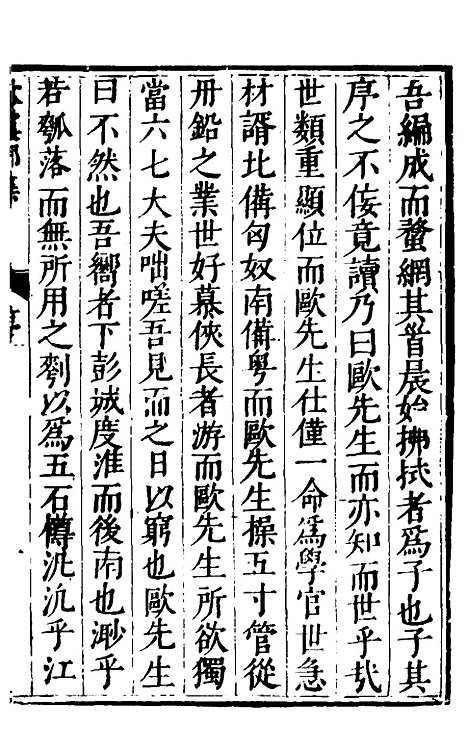 吾編成而蝥網其首晨始拂拭者為子也子其
序之不佞竟讀乃曰歐先生而亦知而世乎㢤
世類重顯位而歐先生仕僅一命為學官世急
材諝北備匈奴南備粤而歐先生操五寸管從
冊鉛之業世好慕俠長者游而歐先生所欲獨
當六七大夫咄嗟吾見而之日以窮也歐先生
曰不然也吾嚮者下彭城度淮而後南也渺乎
若瓠落而無所用之刳以為五石樽汎汎乎江